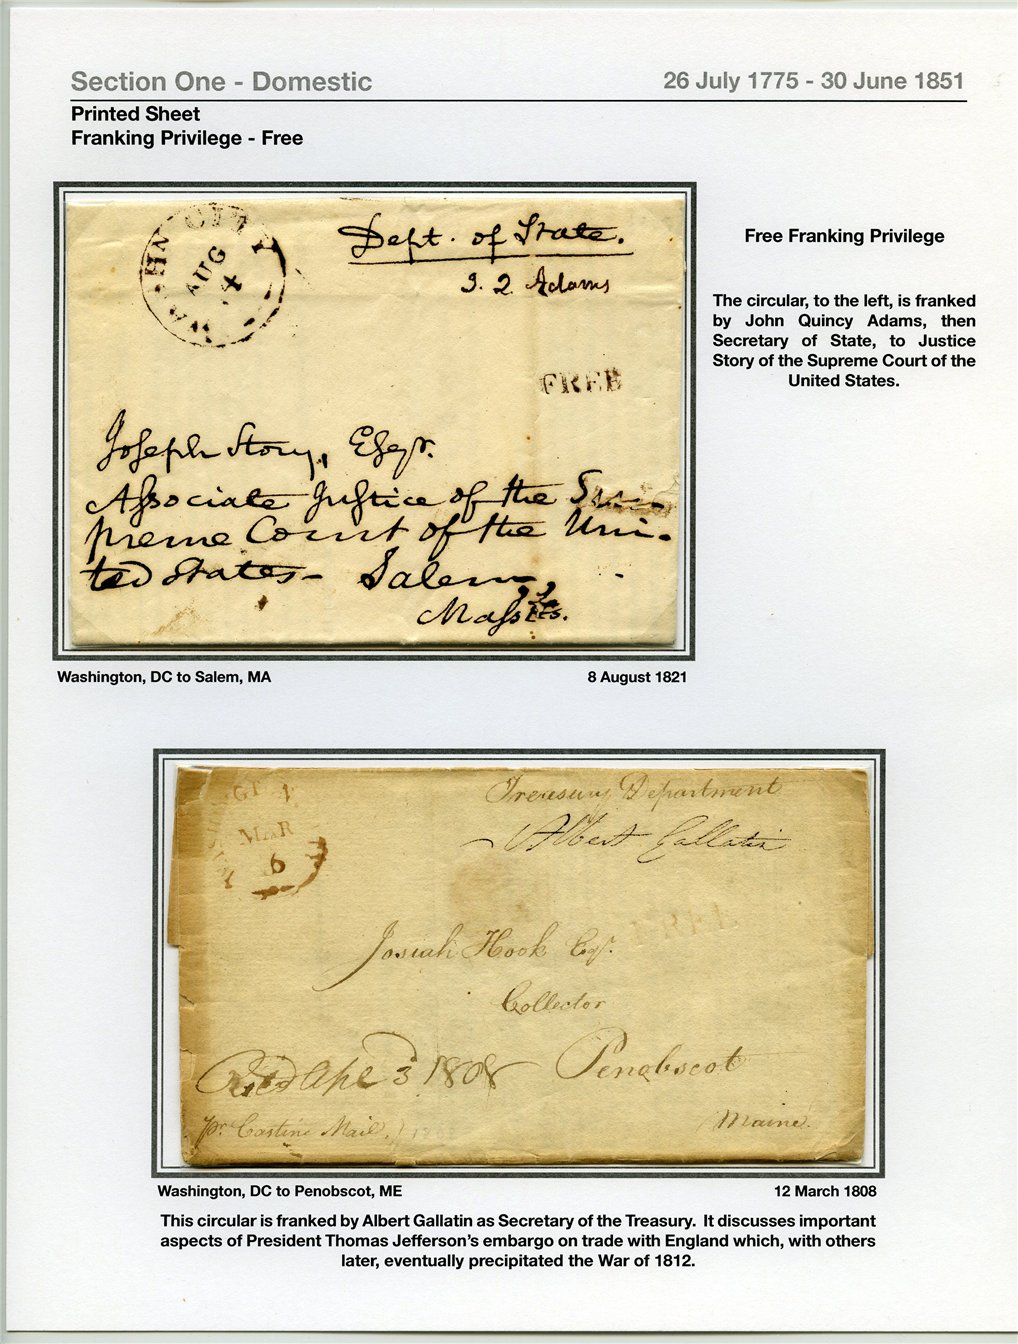 Section One - Domestic
26 July 1775 - 30 June 1851
Printed Sheet
Franking Privilege - Free
WASHN CITY
AUG
14
Dept. of State.
J. Q. Adams
FREE
Joseph Story, Esqr.
Associate Justice of the Su-
preme Court of the Uni-
ted States- Salem,
Massts.
Washington, DC to Salem, MA
8 August 1821
Free Franking Privilege
The circular, to the left, is franked
by John Quincy Adams, then
Secretary of State, to Justice
Story of the Supreme Court of the
United States.
MAR
6
Treasury Department
Albert Gallatin
FREE
Josiah Hook Esqr.
Collector
Penobscot
Maine.
Recd Apl 3 1808
pr. Castine Mail.
Washington, DC to Penobscot, ME
12 March 1808
This circular is franked by Albert Gallatin as Secretary of the Treasury. It discusses important
aspects of President Thomas Jefferson's embargo on trade with England which, with others
later, eventually precipitated the War of 1812.